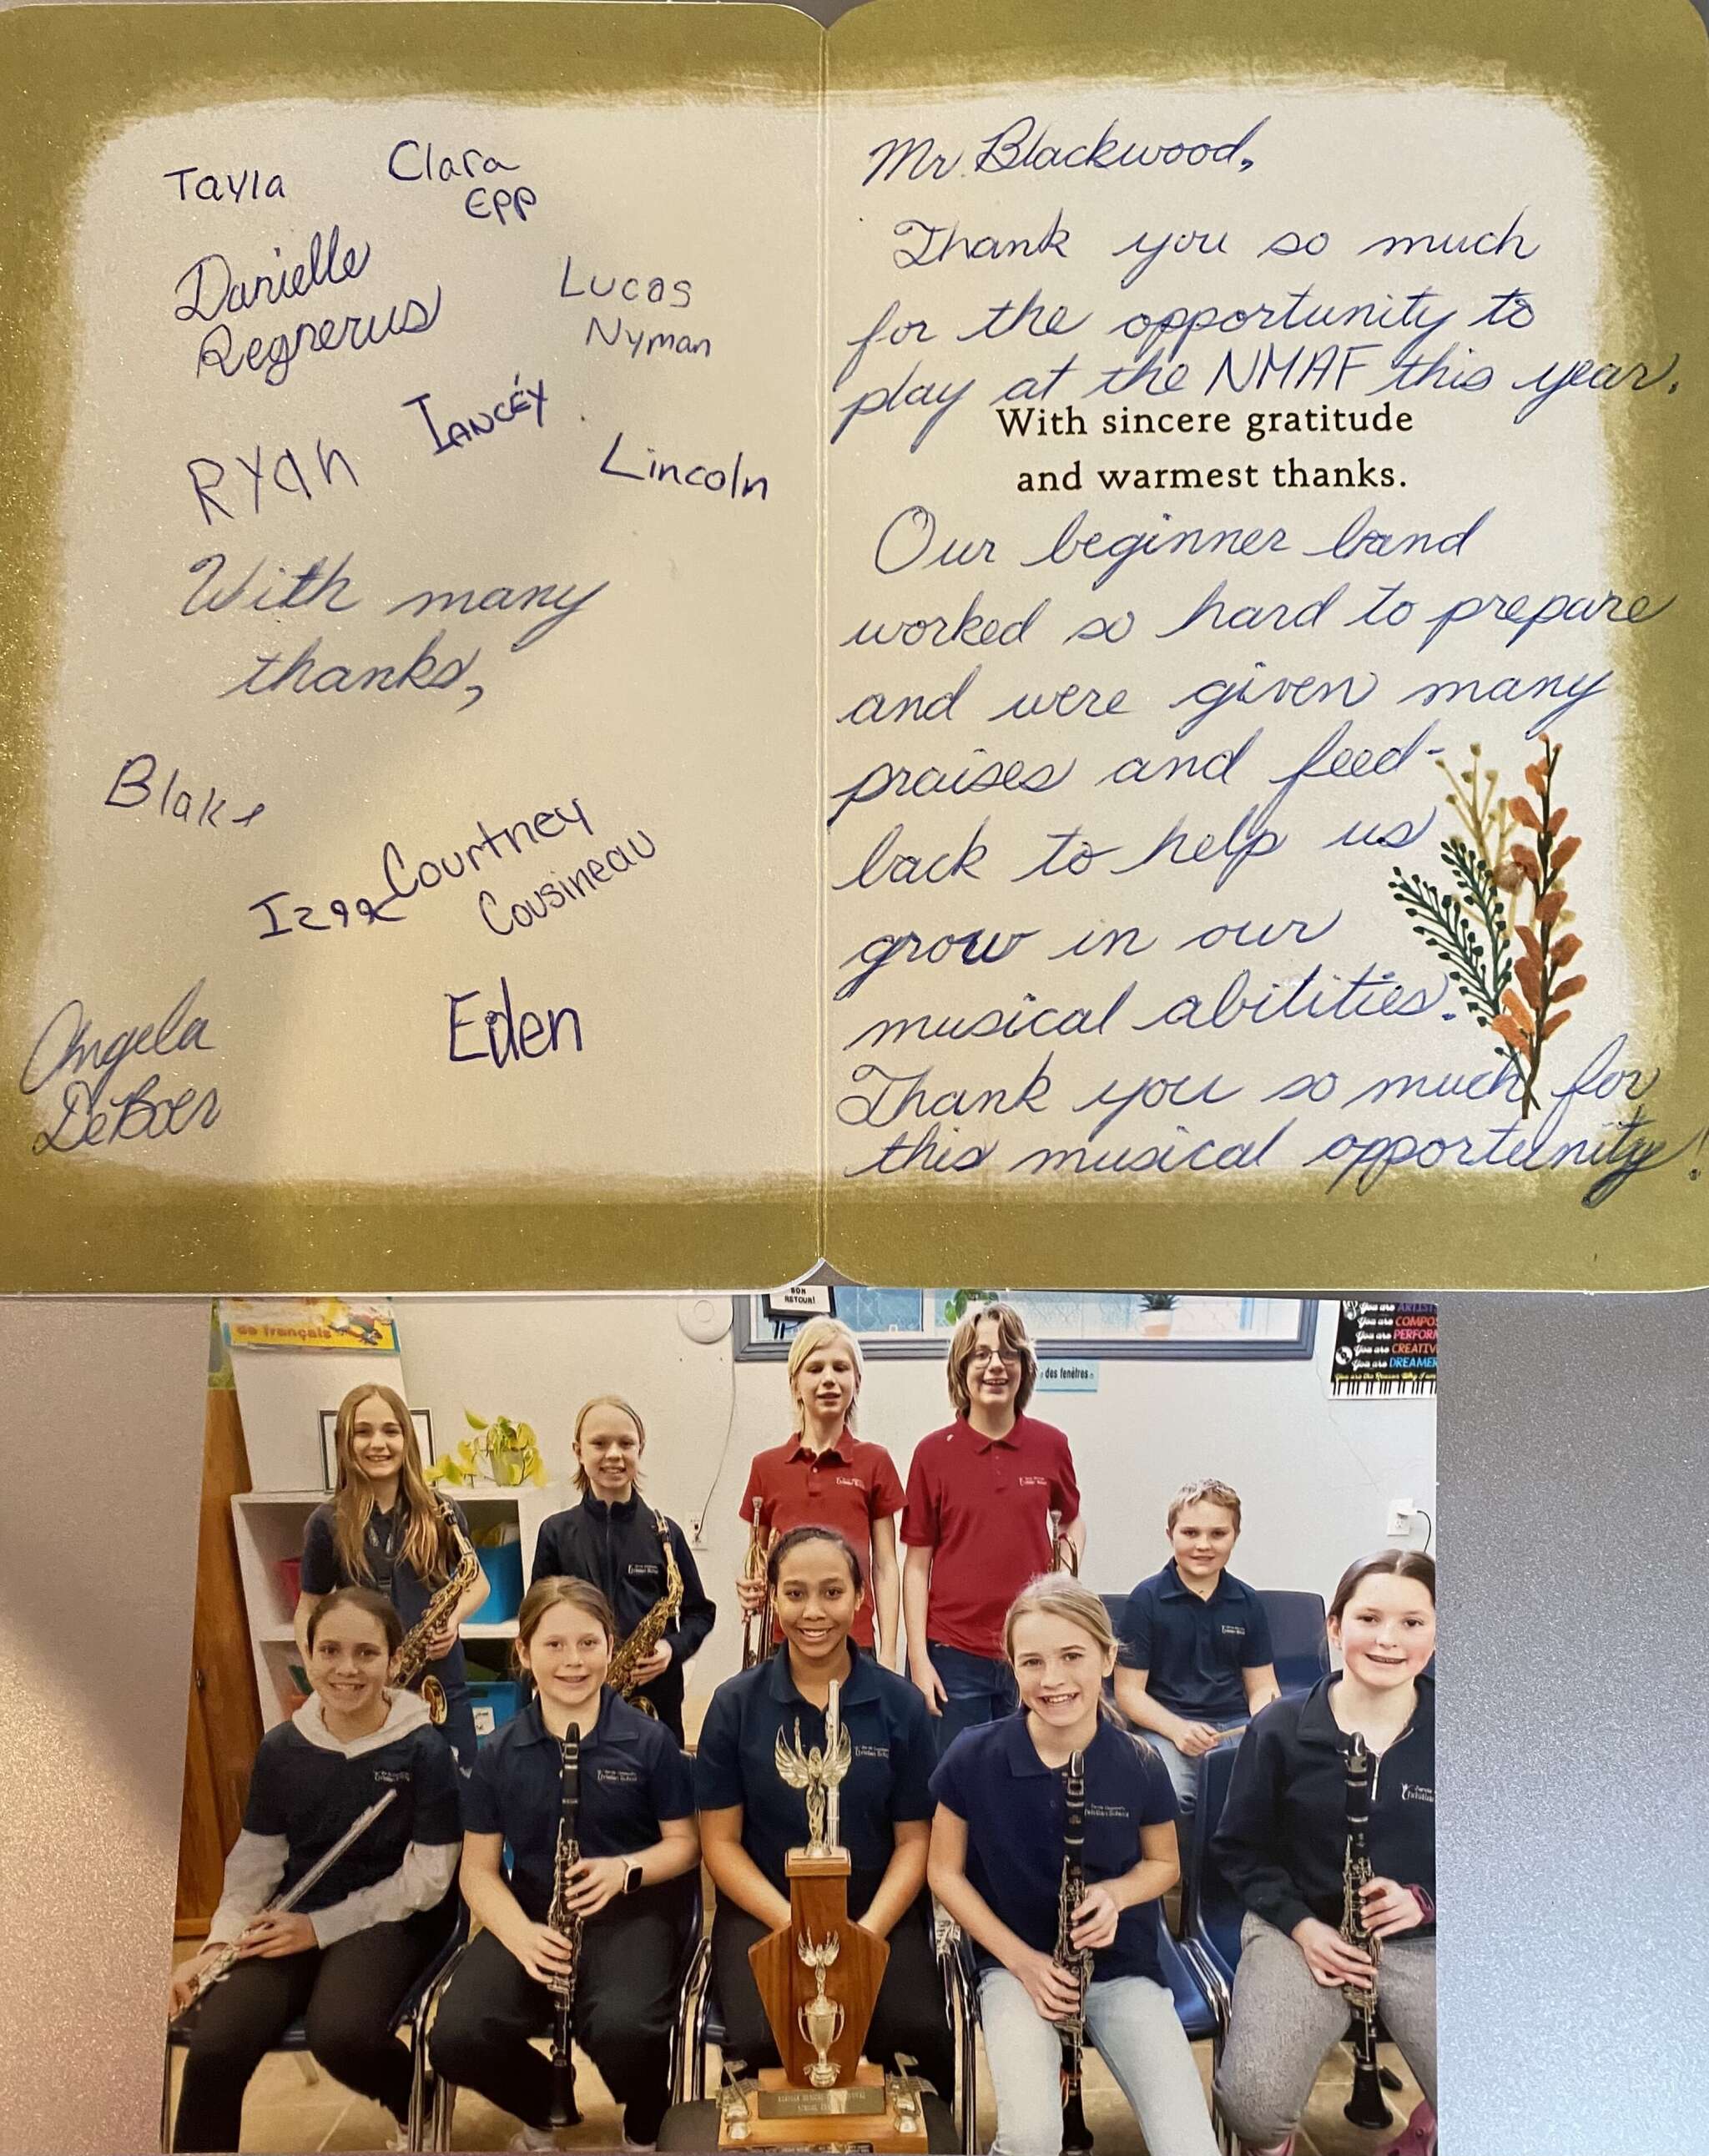 Tayla
Clara
Epp
Danielle
Regnerus
Lucas
Nyman
Iancéy
Ryan
Lincoln
With many
thanks,
Blake
Courtney
Cousineau
Eden
Angela
DeBoer
Mr. Blackwood,
Thank you so much
for the opportunity to
play at the NMAF this year.
With sincere gratitude
and warmest thanks.
Our beginner band
worked so hard to prepare
and were given many
praises and feed-
back to help us
grow in our
musical abilities.
Thank you so much for
this musical opportunity!
BON
RETOUR!
de français
des fenêtres
You are ARTIS
You are COMPOS
You are PERFOR
You are CREATIV
You are DREAMER
Christian School